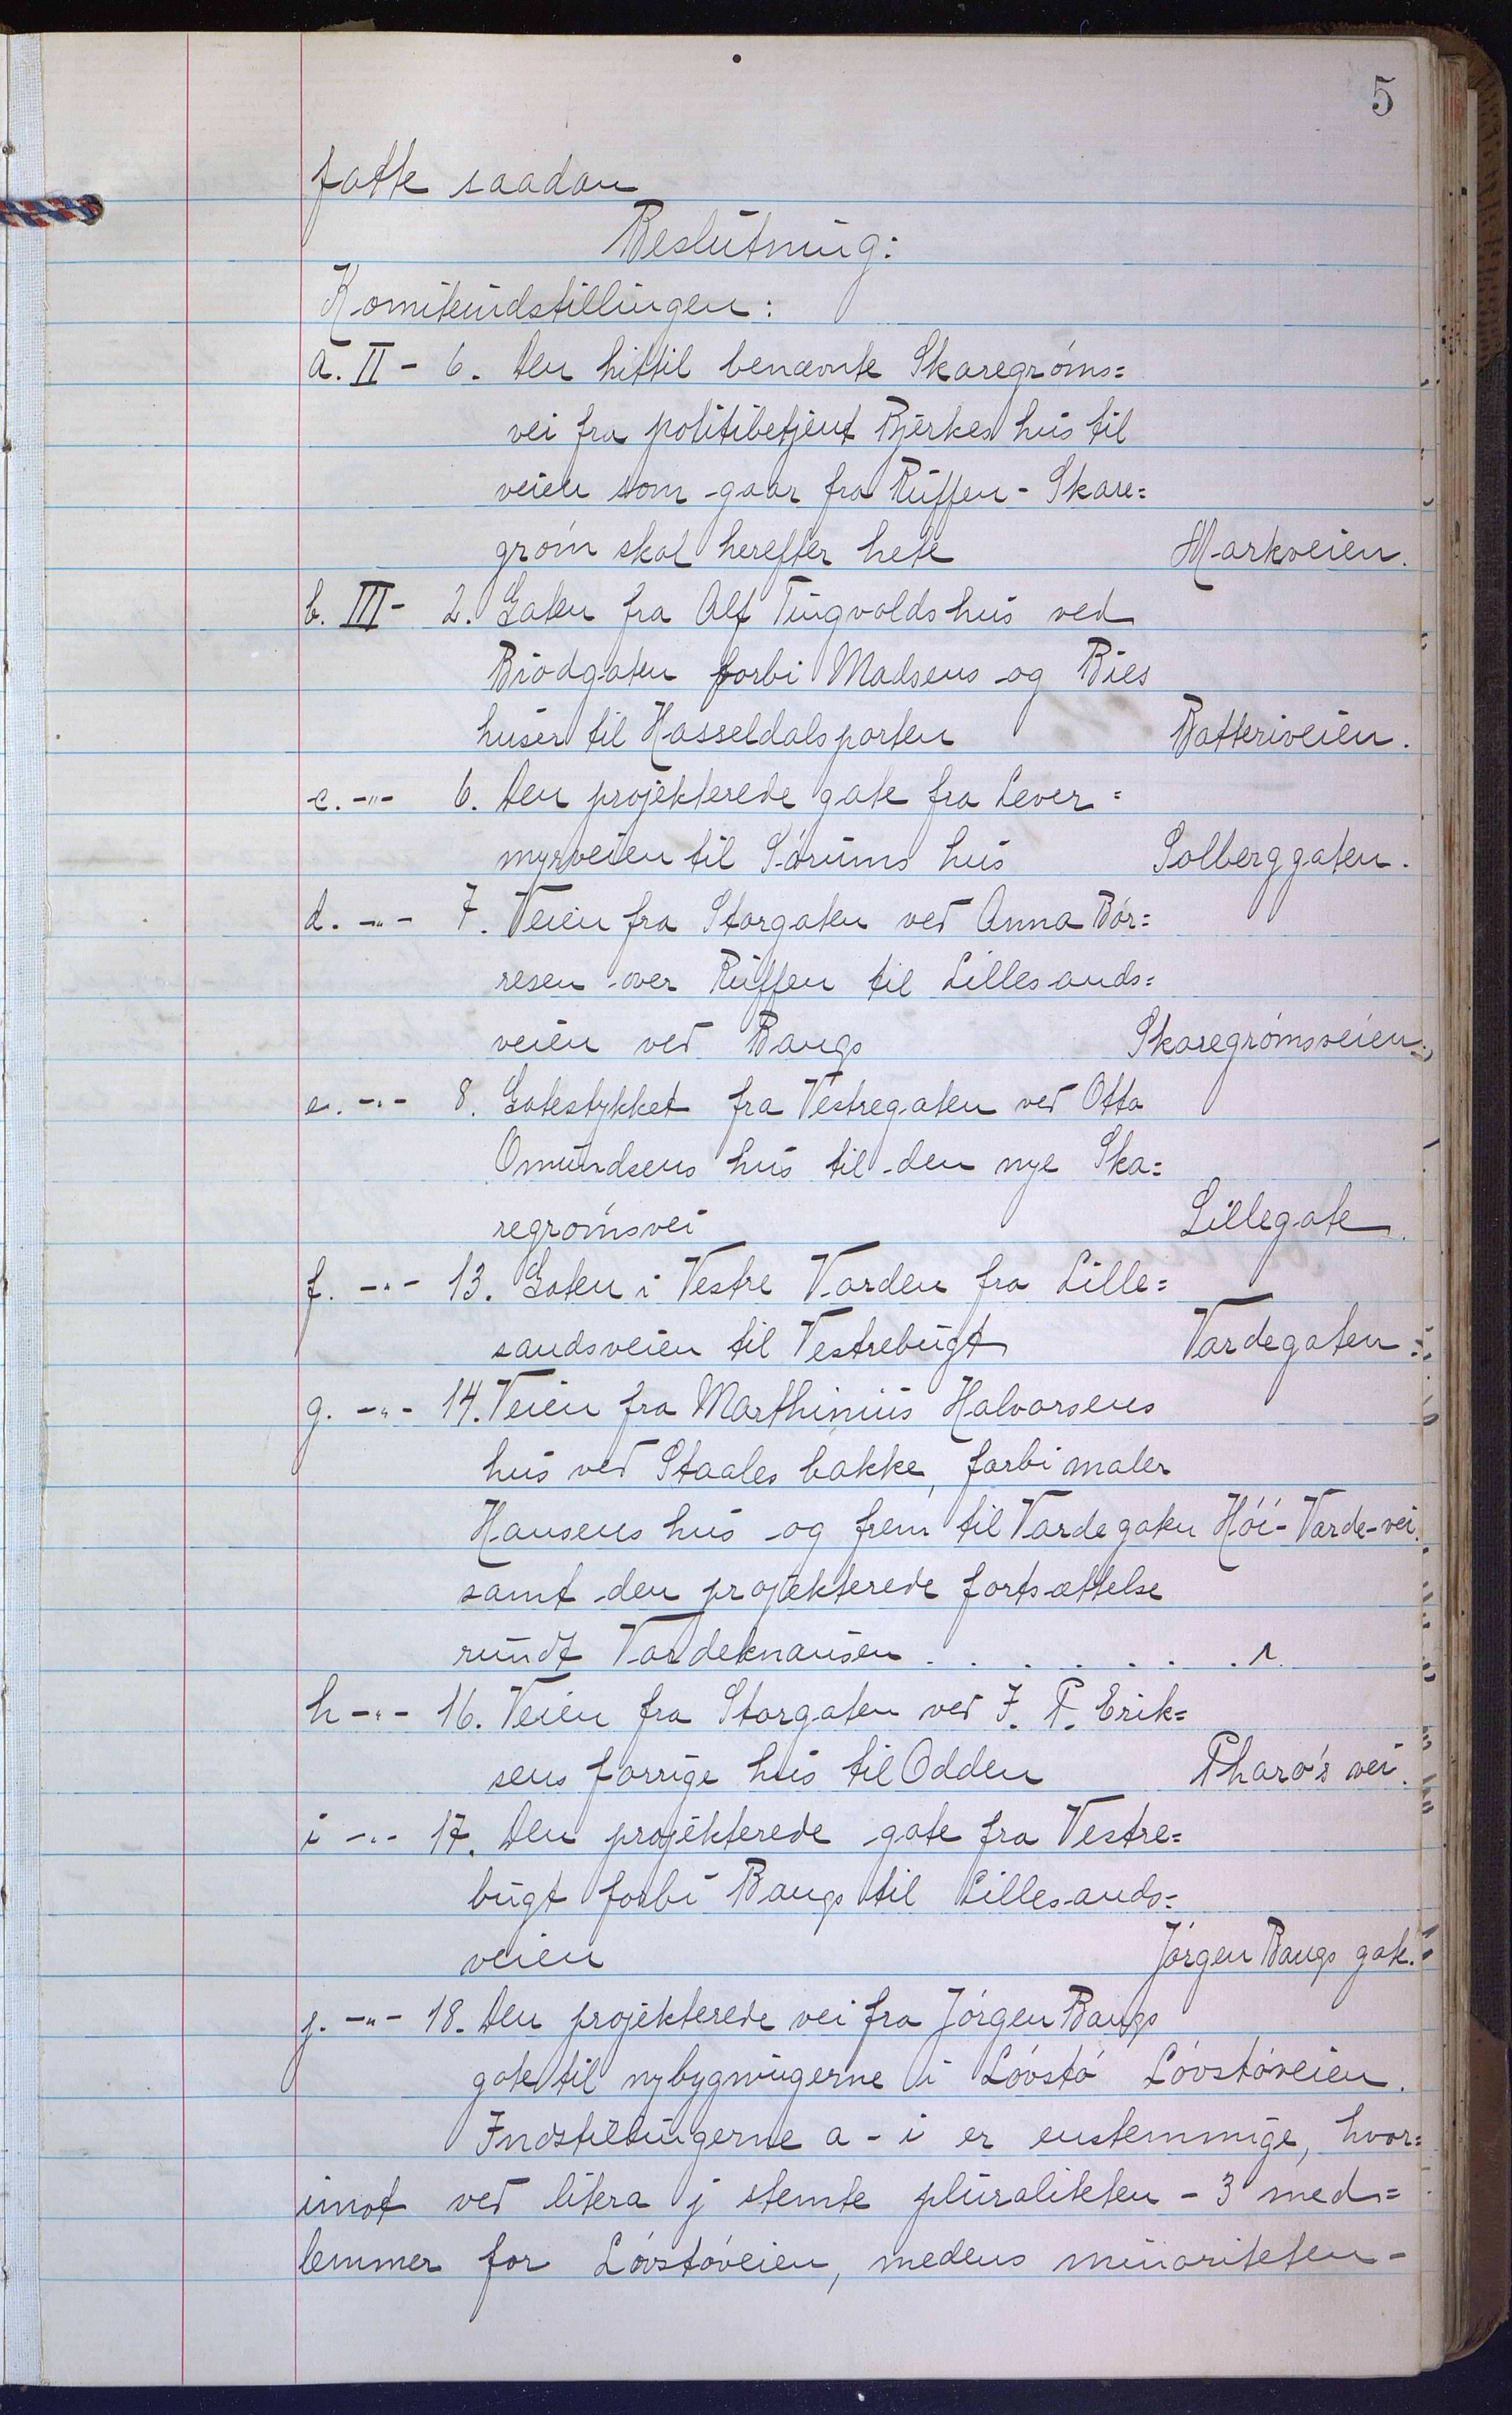 5
fatte saadan
Beslutning:
Komiteindstillingen:
a. II - 6. Den hittil benævnte Skaregrøms=
vei fra politibetjent Bjerkes hus til
veien som gaar fra Ruffen - Skare=
grøm skal herefter hete Markveien.
b. III - 2. Gaten fra Alf Tingvolds hus ved
Biodgaten forbi Madsens og Bies
huser til Hasseldalsporten Batteriveien.
c. -"- 6. Den projekterede gate fra Lever=
myrveien til Sørums hus Solberggaten.
d. -"- 7. Veien fra Storgaten ved Anna Bør=
resen over Ruffen til Lillesands=
veien ved Bangs Skaregrømsveien.
e. -"- 8. Gatestykket fra Vestregaten ved Otto
Omundsens hus til den nye Ska=
regrømsvei Lillegate.
f. -"- 13. Gaten i Vestre Varden fra Lille=
sandsveien til Vestrebugt Vardegaten.
g. -"- 14. Veien fra Marthinius Halvorsens
hus ved Staales bakke, forbi maler
Hansens hus og frem til Vardegaten Høi-Varde-vei.
samt den projekterede fortsættelse
rundt Vardeknausen . . . . . . .
h -"- 16. Veien fra Storgaten ved J. P. Erik=
sens forrige hus til Odden Pharo's vei.
i -"- 17. Den projekterede gate fra Vestre=
bugt forbi Bangs til Lillesands=
veien Jørgen Bangs gate.
j. -"- 18. Den projekterede vei fra Jørgen Bangs
gate til nybygningerne i Løvstø Løvstøveien.
Indstillingerne a - i er enstemmige, hvor=
imot ved litera j stemte pluraliteten - 3 med=
lemmer for Løvstøveien, medens minoriteten -